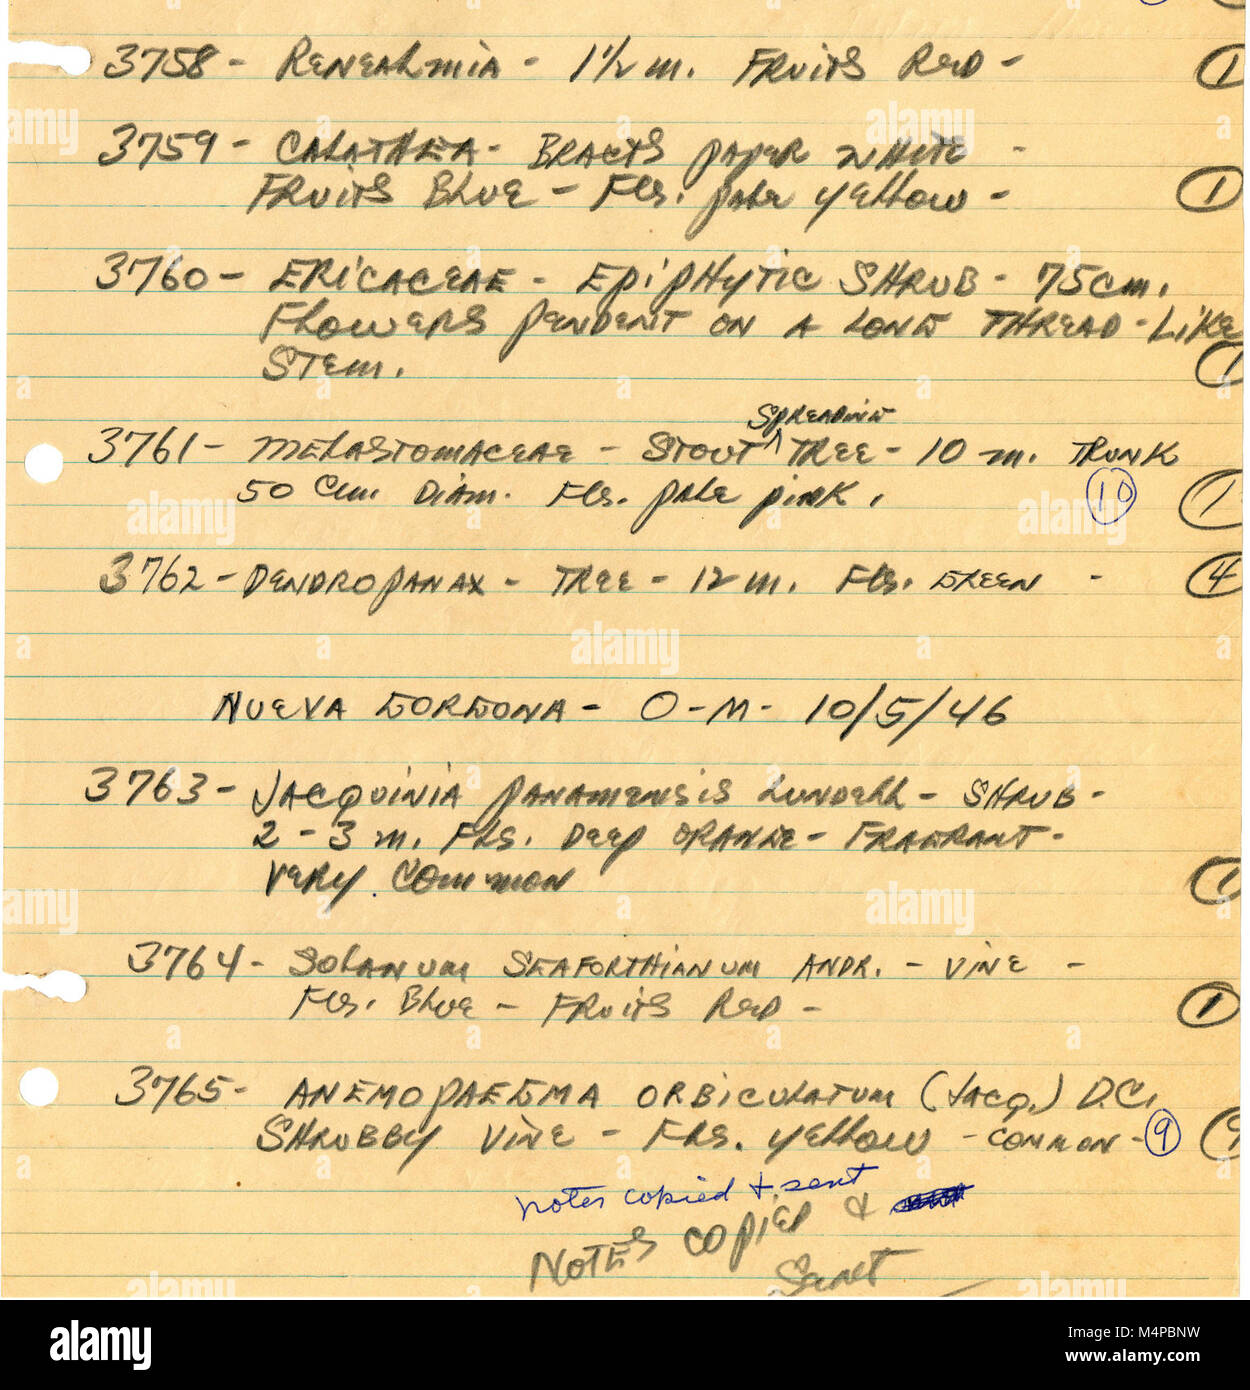 3758 - Renealmia - 1 1/2 m. Fruits Red - 1
3759 - Calathea - Bracts paper white -
Fruits Blue - Fls. pale yellow - 1
3760 - Ericaceae - Epiphytic shrub - 75 cm.
Flowers pendent on a long thread-like
stem. 1
spreading
3761 - Melastomaceae - Stout ^ tree - 10 m. Trunk
50 cm. Diam. Fls. pale pink. 10 1
3762 - Dendropanax - Tree - 12 m. Fls. green - 4
Nueva Gorgona - O-M- 10/5/46
3763 - Jacquinia panamensis Lundell - Shrub -
2-3 m. Fls. Deep orange - Fragrant -
Very common 1
3764 - Solanum seaforthianum Andr. - Vine -
Fls. Blue - Fruits Red - 1
3765 - Anemopaegma orbiculatum (Jacq.) D.C.
Shrubby vine - Fls. yellow - common - 9 9
notes copied & sent
Notes copied &
Sent
alamy
Image ID: M4PBNW
www.alamy.com